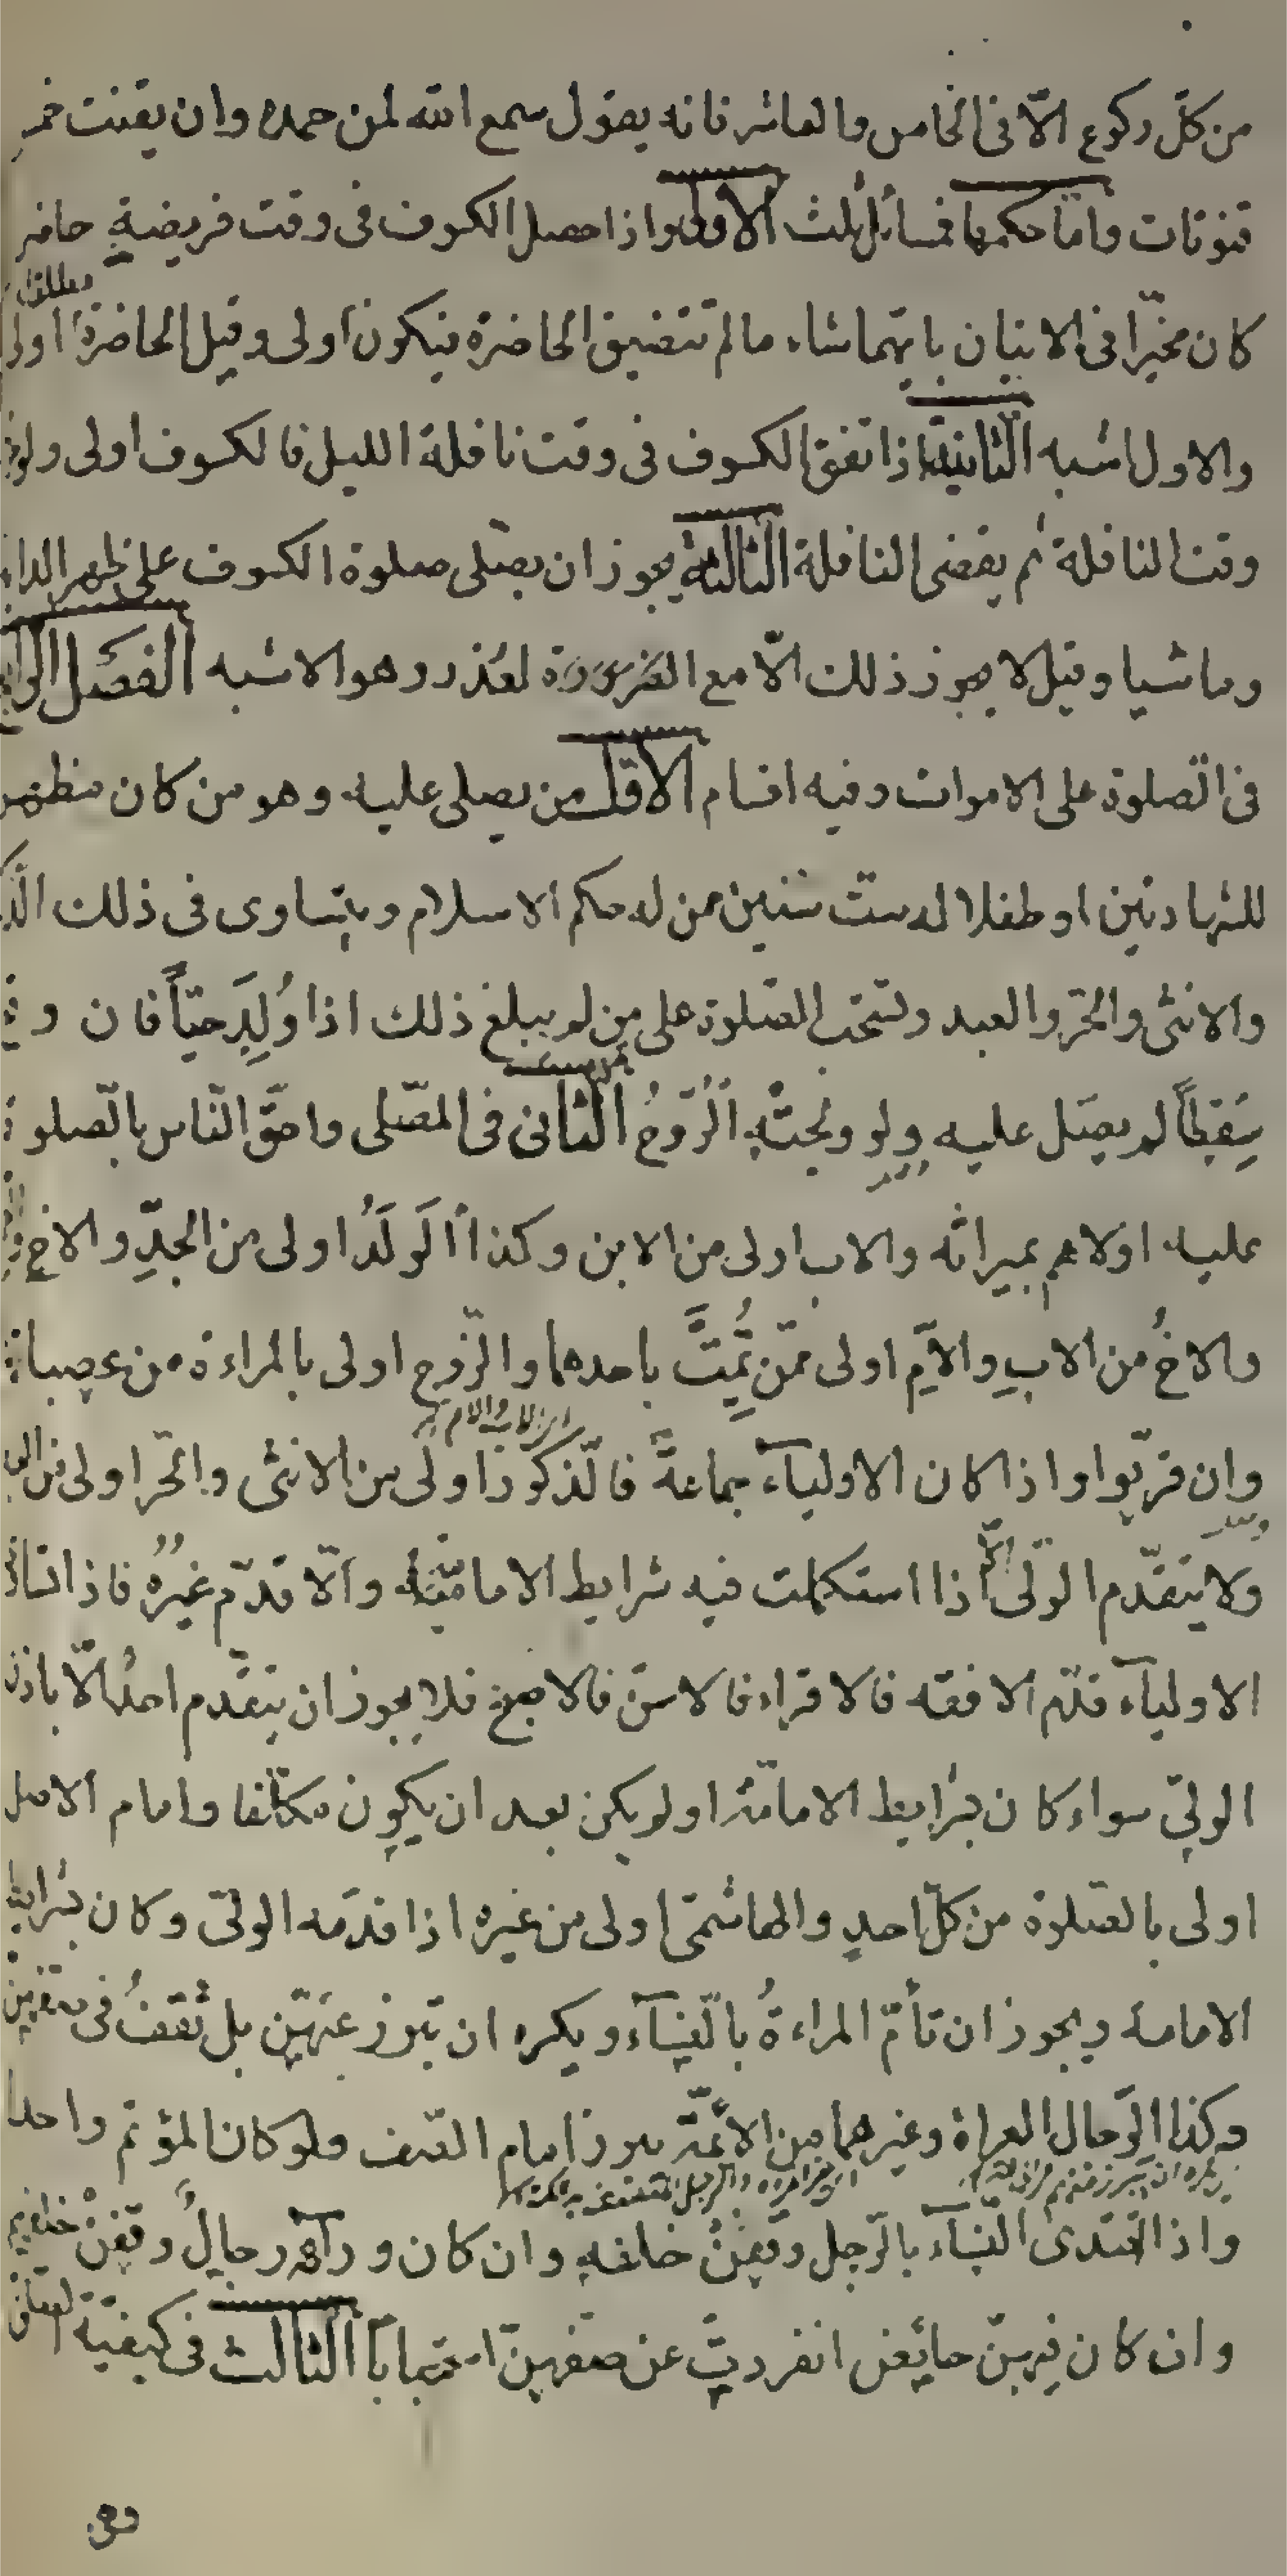 من كلّ ركوع الّا فى الخامس والعاشر فانه يقول سمع الله لمن حمده وان يقنت خمس
قنوتات وامّا حكمها فمسائل ثلث الاولى اذا حصل الكسوف فى وقت فريضة حاضرة
كان مخيّرا فى الاتيان بايّهما شاء ما لم تتضيق الحاضرة فيكون اولى وقيل الحاضرة اولى مطلقا
والاول اشبه الثانية اذا اتفق الكسوف فى وقت نافلة الليل فالكسوف اولى ولو خرج
وقت النافلة ثم يقضى النافلة الثالثة يجوز ان يصلّى صلوة الكسوف على ظهر الدابة
وماشيا وقيل لا يجوز ذلك الّا مع العذر وهو الاشبه الفصل الرابع
فى الصّلوة على الاموات وفيه اقسام الاوّل من يصلى عليه وهو من كان مظهرا
للشهادتين او طفلا له ستّ سنين ممن له حكم الاسلام ويتساوى فى ذلك الذّكر
والانثى والحرّ والعبد وتستحبّ الصّلوة على من لم يبلغ ذلك اذا وُلِدَ حيّاً فان وقع
سِقطاً لم يصلّ عليه ولو ولجته الرّوحُ الثانى فى المصّلى واحقّ النّاس بالصّلوة
عليه اولاهم بميراثه والاب اولى من الابن وكذا الوَلَدُ اولى من الجدِّ والاخ
والاخُ من الابِ والامِّ اولى ممّن يمتّ باحدهما والزّوج اولى بالمراءة من عصباتها
وان قربوا واذا كان الاولياء جماعةً فالذّكور اولى من الانثى والحرّ اولى من العبد
ولا يتقدّم الولىّ الّا اذا استكملت فيه شرايط الامامة والّا قدّم غيرُه فاذا تساوى
الاولياء قدّم الافقه فالاقراء فالاسنّ فالاصبح فلا يجوز ان يتقدّم احدٌ الّا باذن
الولىّ سواء كان بشرايط الامامة او لم يكن بعد ان يكون مكلّفا وامام الاصل
اولى بالصّلوة من كلّ احدٍ والهاشمىّ اولى من غيره اذا قدّمه الولىّ وكان بشرايط
الامامة ويجوز ان تأمّ المراءةُ بالنّساء ويكره ان تبرز عنهنّ بل تقفُ فى صفهنّ
وكذا الرّجال العراة وغيرهما من الائمّة يبرز امام الصّف ولو كان المؤتم واحدا
واذا اقتدى النّساء بالرّجل وقفنَ خلفه وان كان وراءه رجالٌ وقفنَ خلفهم
وان كان فيهنّ حائض انفردت عن صفهنّ استحبابًا الثالث فى كيفيّة الصلوة